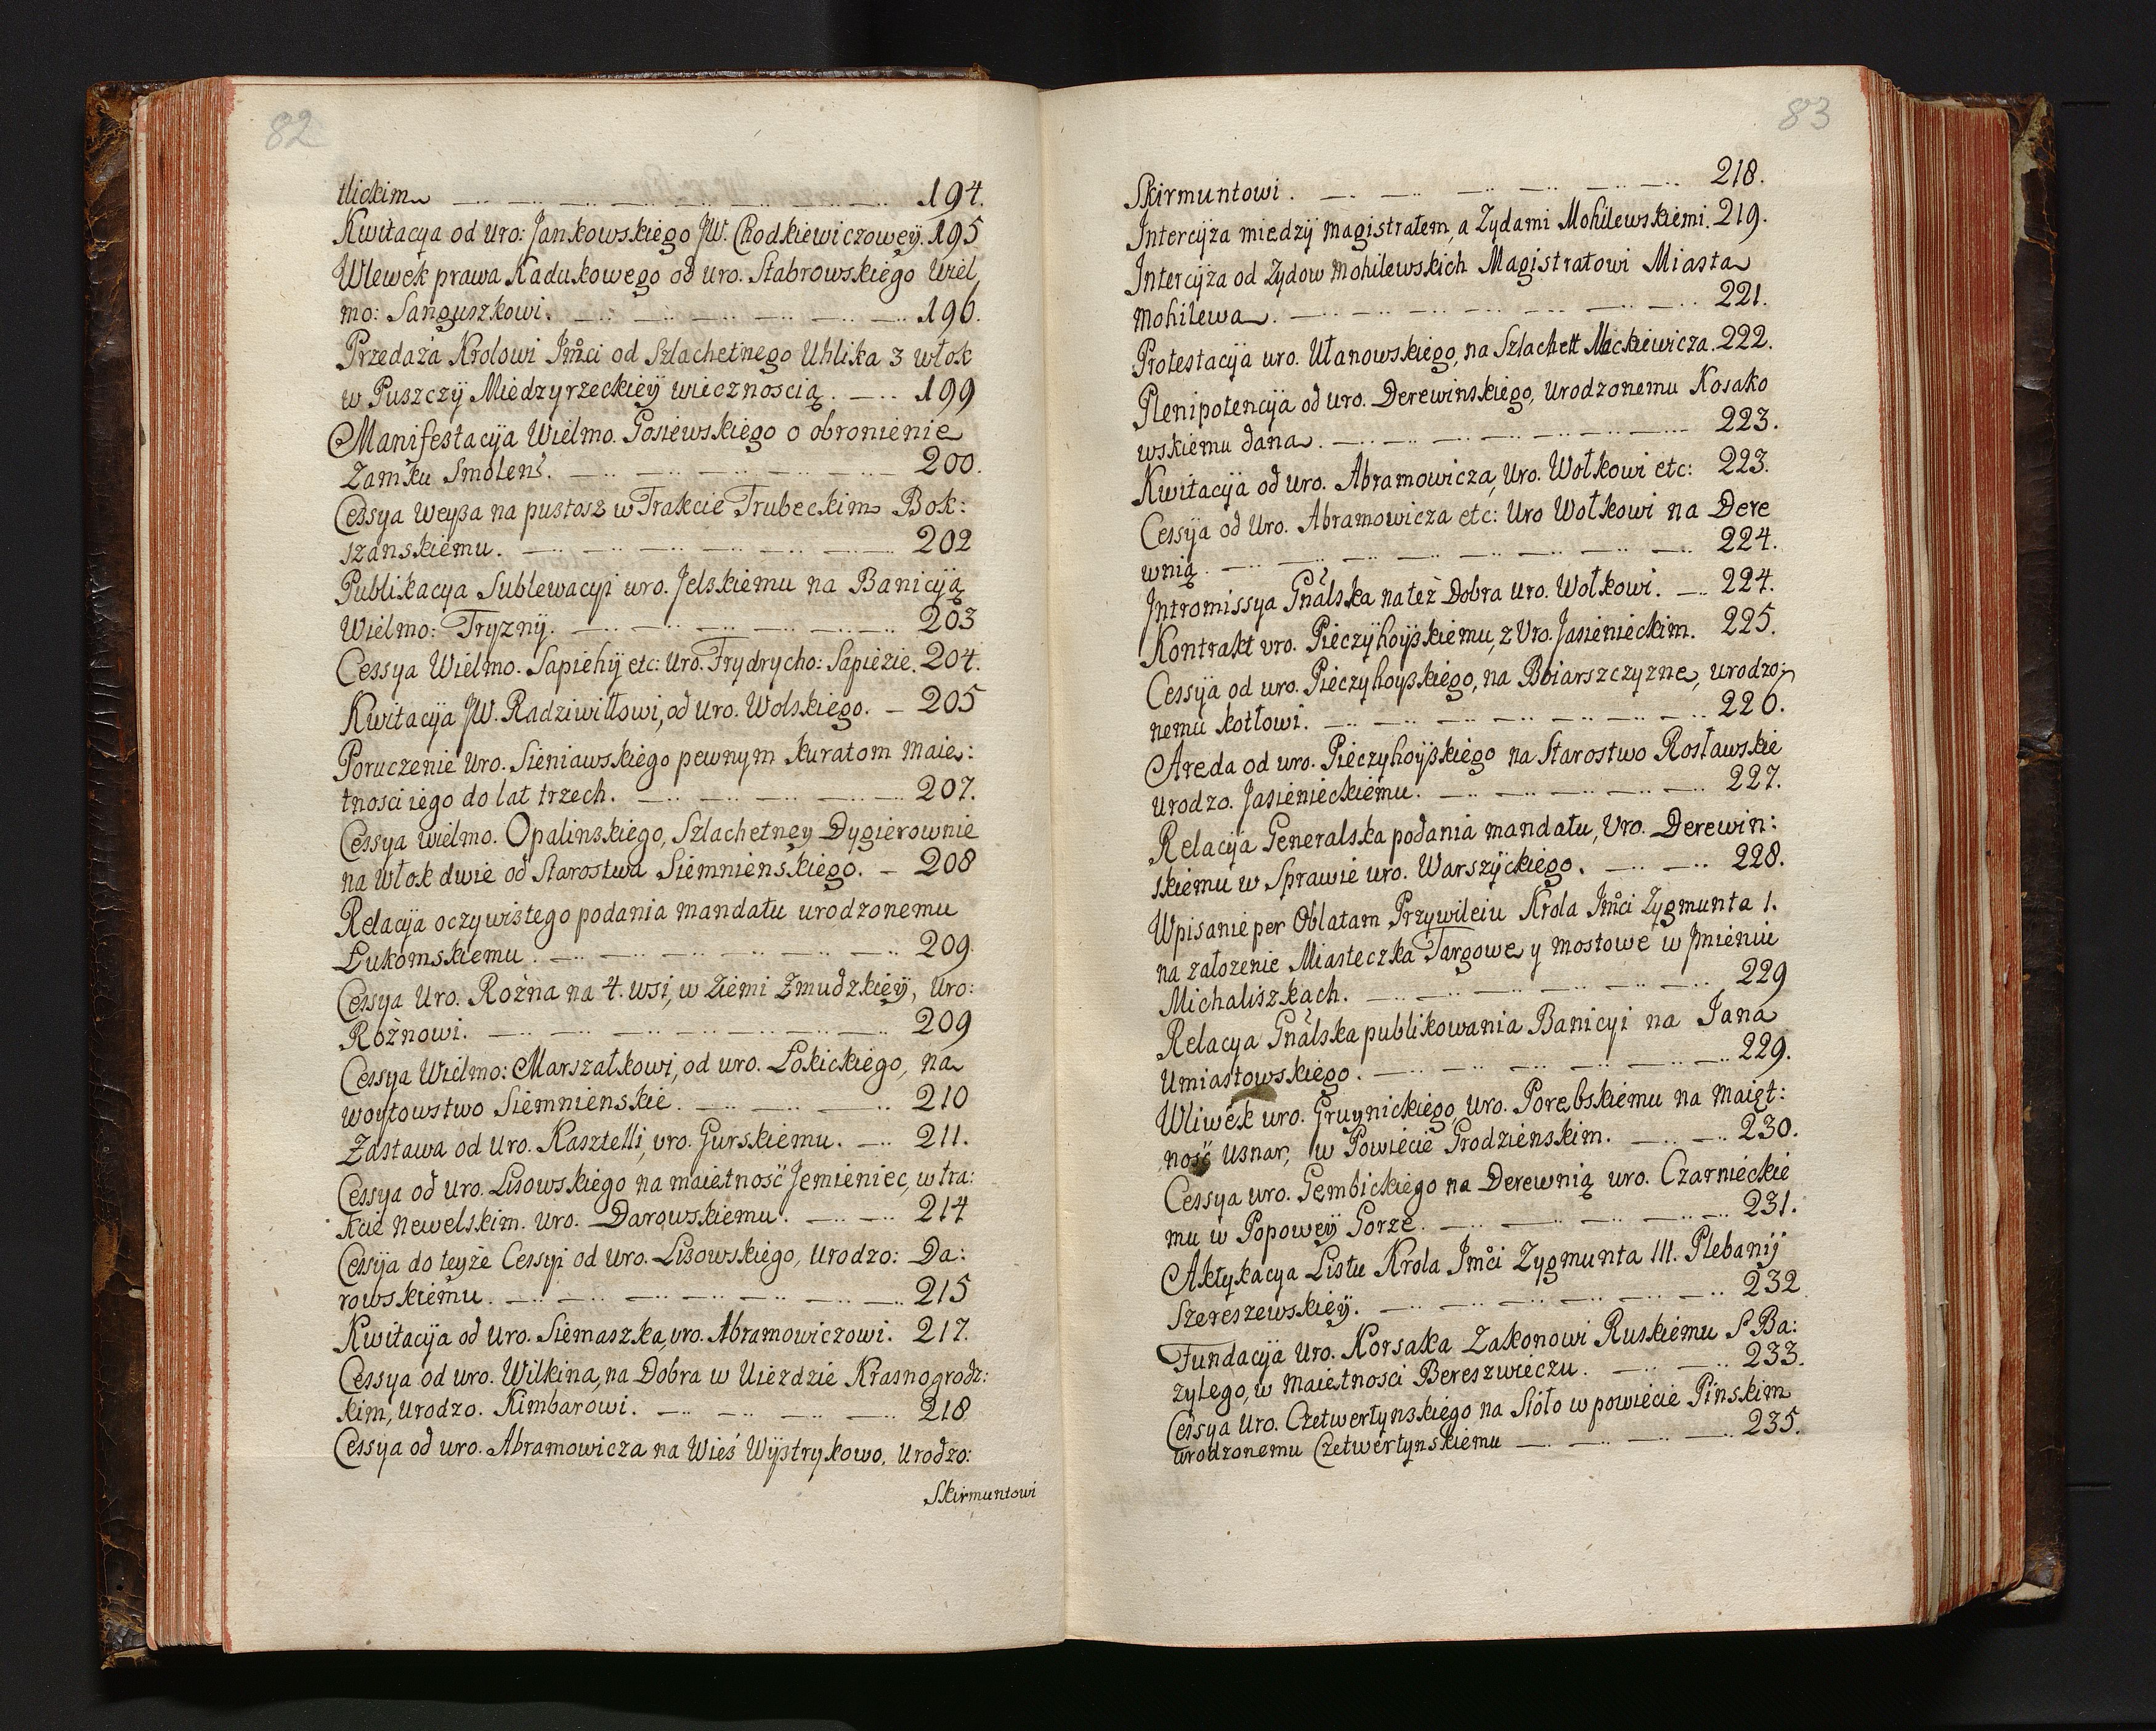 82
tlickim 194.
Kwitacya od uro: Jankowskiego JW. Chodkiewiczowey. 195
Wlewek prawa Kadukowego od uro. Stabrowskiego Wiel,
mo: Sanguszkowi. 196.
Przedaża Krolowi Jmci od Szlachetnego Uhlika 3 włok
w Puszczÿ Miedzyrzeckieÿ wiecznoscią. 199
Manifestacÿa Wielmo. Gosiewskiego o obronienie
Zamku Smolens. 200.
Cessya Weyßa na pustosz w Trakcie Trubeckim Bok:
szanskiemu. 202
Publikacya Sublewacyi uro. Jelskiemu na Banicÿą
Wielmo: Tryznÿ. 203
Cessya Wielmo. Sapiehÿ etc: Uro. Frydrycho: Sapiezie. 204.
Kwitacÿa JW. Radziwiłłowi, od Uro. Wolskiego. 205
Poruczenie Uro. Sieniawskiego pewnym kuratom maie:
tnosci iego do lat trzech. 207.
Cessya wielmo. Opalinskiego, Szlachetney Dygierownie
na włok dwie od Starostwa Siemnienskiego. 208
Relacÿa oczywistego podania mandatu urodzonemu
Łukomskiemu. 209.
Cessya Uro. Rożna na 4. wsi, w Ziemi Żmudzkieÿ, Uro:
Rożnowi. 209
Cessya Wielmo: Marszałkowi, od uro. Łokickiego, na
woytowstwo Siemnienskie. 210
Zastawa od Uro. Kasztelli, uro. Gurskiemu. 211.
Cessya od uro. Lisowskiego na maietność Jemieniec, w tra:
kcie newelskim. Uro. Darowskiemu. 214
Cessÿa do teyże Cessyi od uro. Lisowskiego, Urodzo: Da:
rowskiemu. 215
Kwitacÿa od Uro. Siemaszka, uro. Abramowiczowi. 217.
Cessya od uro. Wilkina, na Dobra w Uieździe Krasnogrodz:
kim, Urodzo. Kimbarowi. 218
Cessÿa od uro. Abramowicza na Wieś Wÿstrykowo, Urodzo:
Skirmuntowi
83
Skirmuntowi. 218.
Intercÿza miedzÿ magistratem, a Zydami Mohilewskiemi. 219.
Intercÿza od Zydow Mohilewskich Magistratowi Miasta
Mohilewa. 221.
Protestacÿa uro. Ułanowskiego, na Szlachett Mackiewicza. 222.
Plenipotencÿa od uro. Derewinskiego, Urodzonemu Kosako
wskiemu dana. 223.
Kwitacÿa od uro. Abramowicza, Uro. Wołkowi etc: 223.
Cessÿa od Uro. Abramowicza etc: Uro Wołkowi na Dere
wnią. 224.
Jntromissya Gnalska na też Dobra Uro. Wołkowi. 224.
Kontrakt uro. Pieczÿhoÿskiemu, z Uro. Jasienieckim. 225.
Cessÿa od uro. Pieczyhoyskiego, na Boiarszczyzne, urodzo:
nemu kotłowi. 226.
Areda od uro. Pieczyhoÿskiego na Starostwo Rosławskie
Urodzo. Jasienieckiemu. 227.
Relacÿa Generalska podania mandatu, Uro. Derewin:
skiemu w Sprawie uro. Warszÿckiego. 228.
Wpisanie per Oblatam Przywileiu Krola Jmci Zygmunta 1.
na założenie Miasteczka Targowe y mostowe w Jmieniu
Michaliszkach. 229
Relacya Gnalska publikowania Banicyi na Jana
Umiastowskiego. 229.
Wliwek uro. Gruynickiego, uro. Porębskiemu na Maięt:
ność Usnar, w Powiecie Grodzienskim. 230.
Cessya uro. Gembickiego na Derewnią uro. Czarnieckie
mu w Popoweÿ Gorze. 231.
Aktykacya Listu Krola Jmci Zygmunta III. Plebanij
Szereszewskieÿ. 232
Fundacÿa Uro. Korsaka Zakonowi Ruskiemu S Ba:
zylego, w maietnosci Bereszwieczu. 233.
Cessya Uro. Czetwertynskiego na Sioło w powiecie Pinskim
urodzonemu Czetwertynskiemu 235.